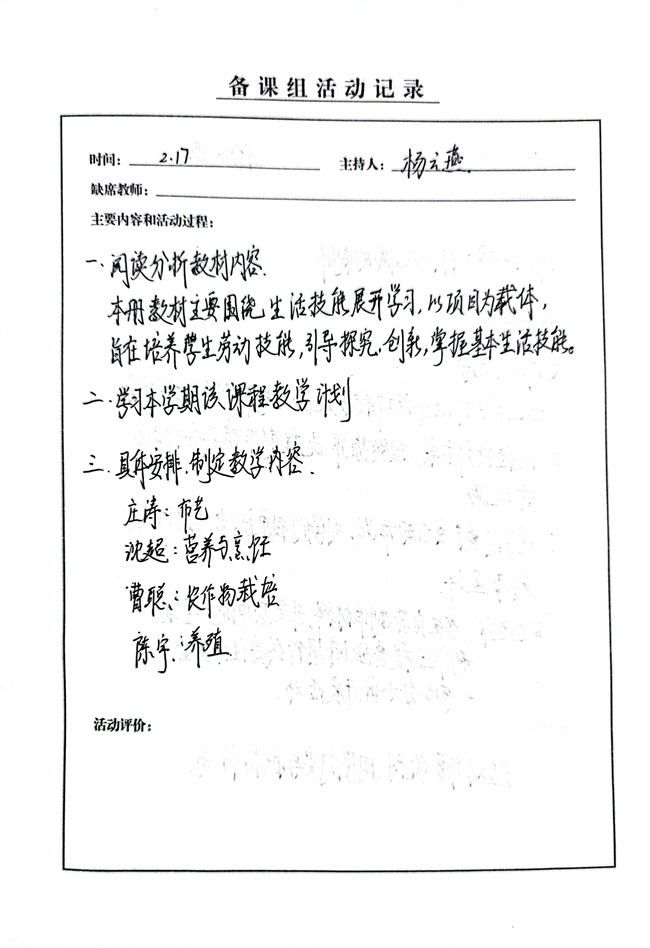 备课组活动记录
时间： 2.17 主持人： 杨云燕
缺席教师：
主要内容和活动过程：
一、阅读分析教材内容.
本册教材主要围绕生活技能展开学习，以项目为载体，
旨在培养学生劳动技能，引导探究、创新，掌握基本生活技能。
二、学习本学期该课程教学计划
三、具体安排、制定教学内容.
庄涛：布艺
沈超：营养与烹饪
曹聪：农作物栽培
陈宇：养殖
活动评价：